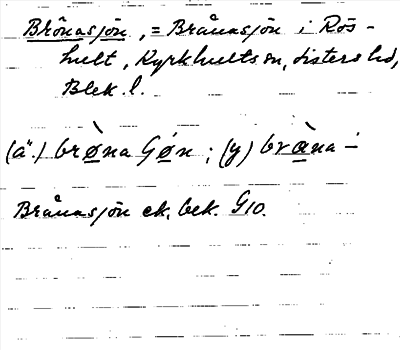 Brönasjön, = Brånasjön i Rös-
hult, Kyrkhults sn, Listers hd,
Blek. l.
(ä.) brø̀na Gøn; (y) bràna-
Brånasjön ek. bek. G10.